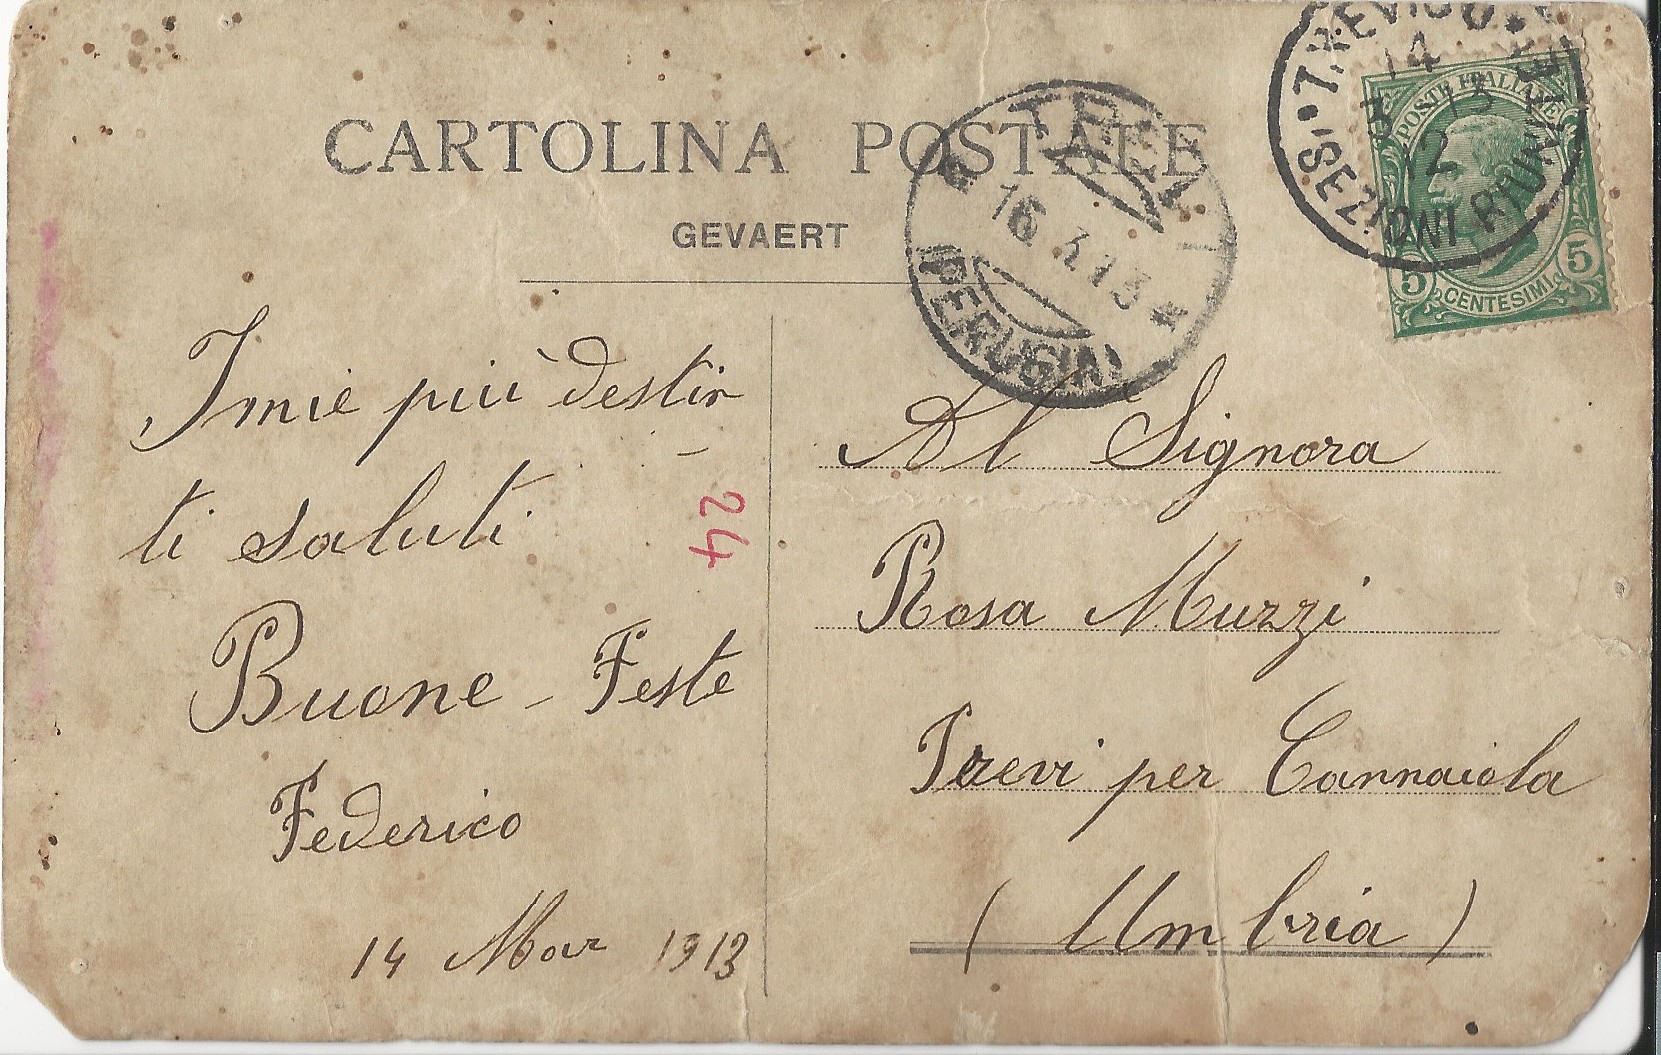 CARTOLINA POSTALE
GEVAERT
TREVI
16.3.13
(PERUGIA)
TREVISO
14
3 13
12
(SEZIONI RIUNITE)
POSTE ITALIANE
5 CENTESIMI 5
I mie più destin
ti saluti
Buone - Feste
Federico
14 Mar 1913
24
Al Signora
Rosa Muzzi
Trevi per Cannaiola
(Umbria)